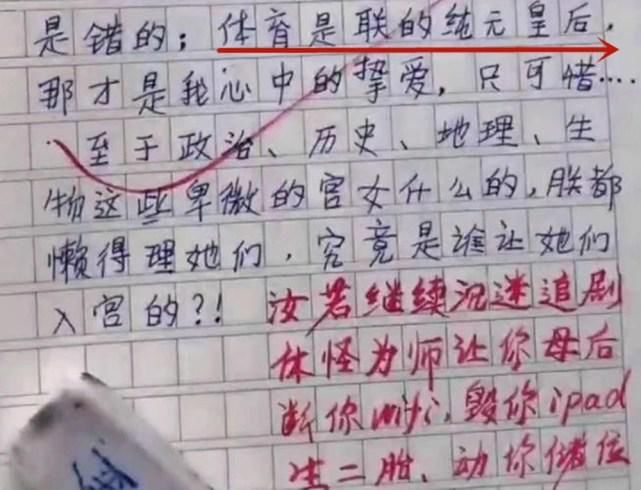 是错的；体育是联的纯元皇后，
那才是我心中的挚爱，只可惜....
至于政治、历史、地理、生
物这些卑微的宫女什么的，朕都
懒得理她们，究竟是谁让她们
入宫的?! 汝若继续沉迷追剧
休怪为师让你母后
断你wifi，毁你ipad
生二胎、动你储位